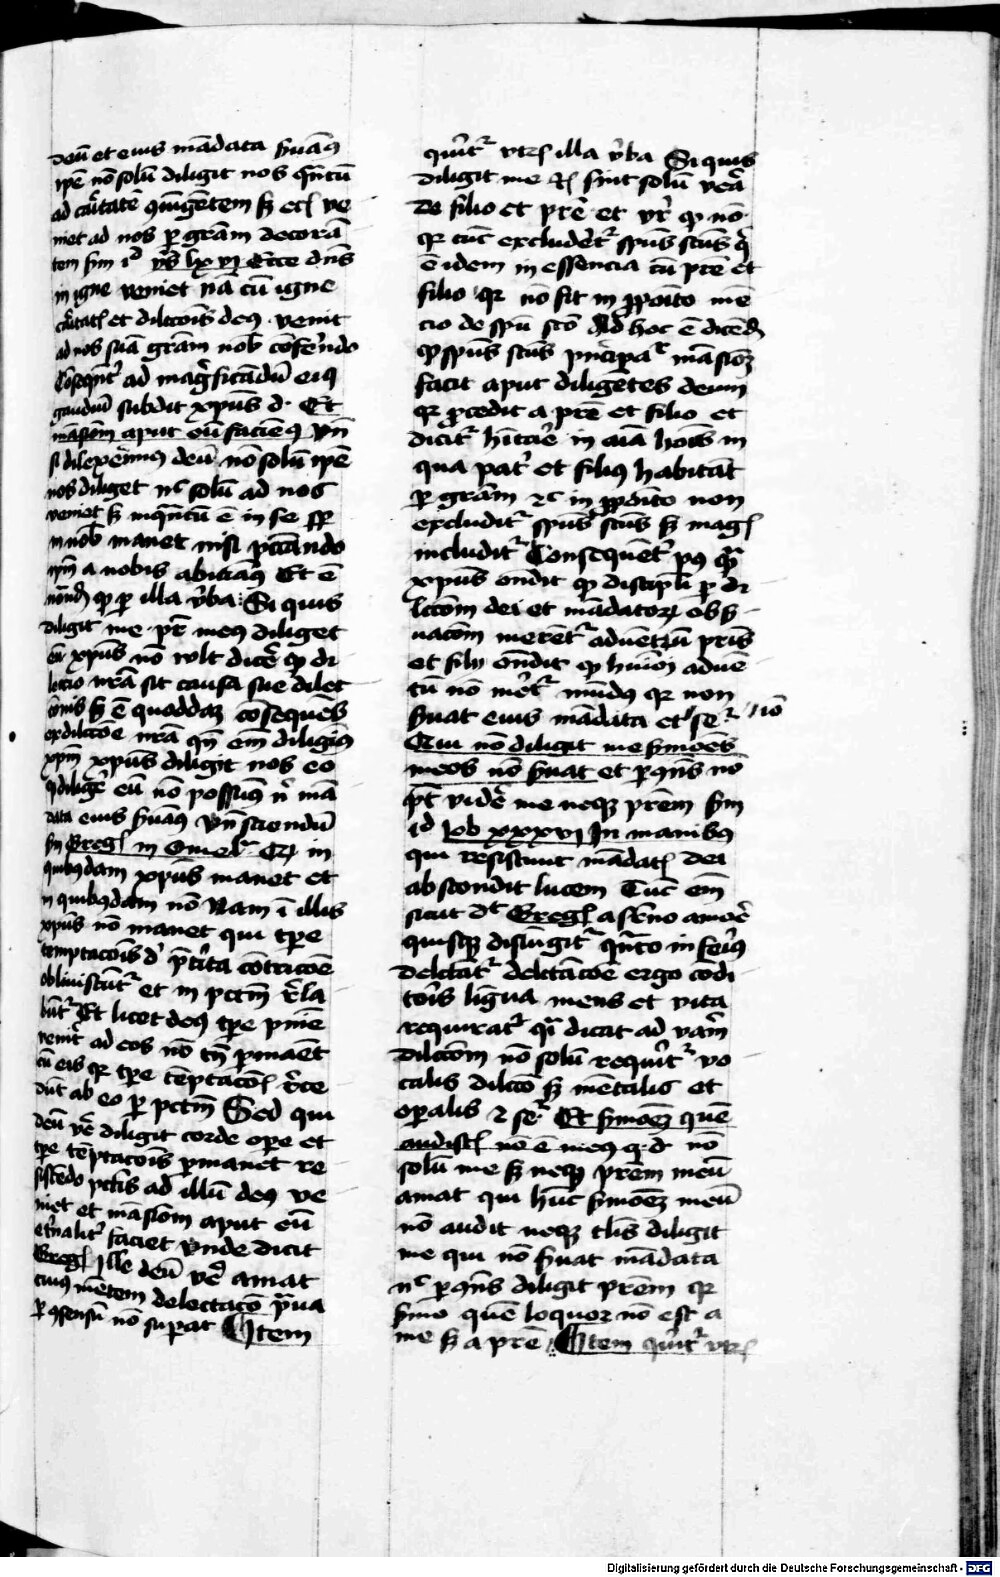 deū et eius mādata ẜuām9
ip̄e nō solū diligit nos q̄ntū
ad cāritatē ꝯiūgētem ẜꝫ ve
niet ad nos ꝑ grām decorā
tem ẜm iᵈ yͣs lxvj Ecce dn̄s
in igne veniet nā cū igne
cāritatꝭ et dilcc̄ois de9 venit
ad nos suā grām nob̄ cōfer̄ndo
Cōseqnt̾ ad mag̾ficādū ei9
gaudiū subdit xp̄us d· Et
māsiōm aput eū faciem9 Vn̄
si dilexerim9 deū nō solū ip̄e
nos diliget nͨ solū ad nos
veniet ẜꝫ inq̄ntū ē in se sꝑ
in nob̄ manet nisi pcc̄ando
ip̄m a nobis abiciam9 Et ē
notād̄ ꝙ ꝑ illa v̾ba Si quis
diligit me pr̄ me9 diliget
eū xp̄us nō vlt dic̾e ꝙ di
lectio nr̄a sit causa sue dilec
cōnis ẜꝫ ē quoddaꝫ cōsequēs
ex dilcc̄oe nr̄a qn̄ em̄ diligim9
xp̄m xp̄us diligit nos eo
ꝙ dilig̾e eū nō possum9 n̾ mā
data eius ẜuām9 Vn̄ sciendū
ẜm Gregꝭ in Omel̾ Qꝫ in
quibꝰdam xp̄us manet et
in quibꝰdam nō Nam ī illis
xp̄us nō manet qui tp̄e
temptac̄ois d̾ p̄t̾ita cōtric̄oē
obliuiscūt̾ et in pctm̄ r̾la
būt̾ Et licet de9 tp̄e pn̄ie
venit̾ ad eos nō tn̄ ꝑmaēt
cū eis qꝛ tp̄e tēptac̄oꝭ r̾ce
dūt ab eo ꝑ pctm̄ Sed qui
deū v̾e diligit corde ope et
tp̄e tēptac̄ois ꝑmanet re
sistēdo pctīs ad illū de9 ve
niet et māsiōm aput eū
et̾nalit̾ faciet Vnde dicit
Gregꝭ Ille deū v̾e amat
cuius mētem delectac̄o p̄ua
ꝑ ꝯsensū nō suꝑat Item
quīt̾ vtrꝭ illa v̾ba Si quis
diligit me ⁊ꝭ sint solū v̾ā
de filio et pr̄e et vr̄ ꝙ nō
qꝛ tūc excludēt̾ sp̄us sc̄us q̾
ē idem in essencia cū pr̄e et
filio qꝛ nō fit in ꝓpoīto mē
cio de sp̄u sc̄o Ad hoc ē dicēd̄
ꝙ sp̄us sc̄us pn̾cipaᵗ māsiōꝫ
facit aput diligētes deum
qꝛ ꝓcedit a pr̄e et filio et
dicit̾ hīt̾are in aīa hoīs in
qua pat̾ et fili9 habitāt
ꝑ grām ⁊c in ꝓpoīto non
excludit̾ sp̄us sc̄us ẜꝫ magꝭ
includit̾ Consequēt̾ p9 qͣ
xp̄us ondit ꝙ discipl̾i ꝑ di
lccōm dei et mādatoꝝ obẜ
uacōm merēt̾ aduētū pr̄is
et filij ondit ꝙ hui9i aduē
tū nō m̾et̾ mūd9 qꝛ non
ẜuat eius mādata et se̾ ⸗iō
Qui nō diligit me ẜmōēs
meos nō ẜuat et ꝑ ꝯn̄s nō
pt̄ vid̾e me neqꝫ pr̄em ẜm
id Iob xxxvj In manib9
qui resistunt mādatꝭ dei
abscondit lucem Tūc em̄
sicut dͭ Gregꝭ a ẜēno amoē
quisqꝫ disiūgit̾ qn̄to inferi9
delctāt̾ delctac̄oē ergo cōdi
toris lingua mens et vita
requirat̾ qͥ dicat ad v̾am
dilcc̄om nō solū requīt̾ vo
calis dilcc̄o ẜꝫ mētalis et
oꝑalis ⁊ se̾ Et ẜmoēꝫ quē
audistꝭ nō ē me9 q·d· nō
solū me ẜꝫ neqꝫ pr̄em meū
amat qui hūc ẜmoēꝫ meū
nō audit neqꝫ tl̾is diligit
me qui nō ẜuat mādata
nͨ ꝑ ꝯn̄s diligit pr̄em qꝛ
ẜmo quē loquor nō est a
me ẜꝫ a pr̄e Item quīt̾ vtrꝭ
Digitalisierung gefördert durch die Deutsche Forschungsgemeinschaft - DFG